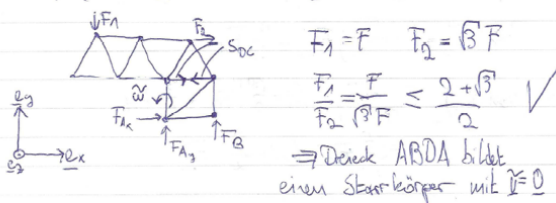 F₁
F₂
S_DC
ω̃
F_Ax
F_Ay
F_B
e_y
e_z
e_x
F₁ = F F₂ = √3 F
F₁/F₂ = F/(√3 F) ≤ (2+√3)/2 ✓
⇒ Dreieck ABDA bildet
einen Starrkörper mit ṽ = 0